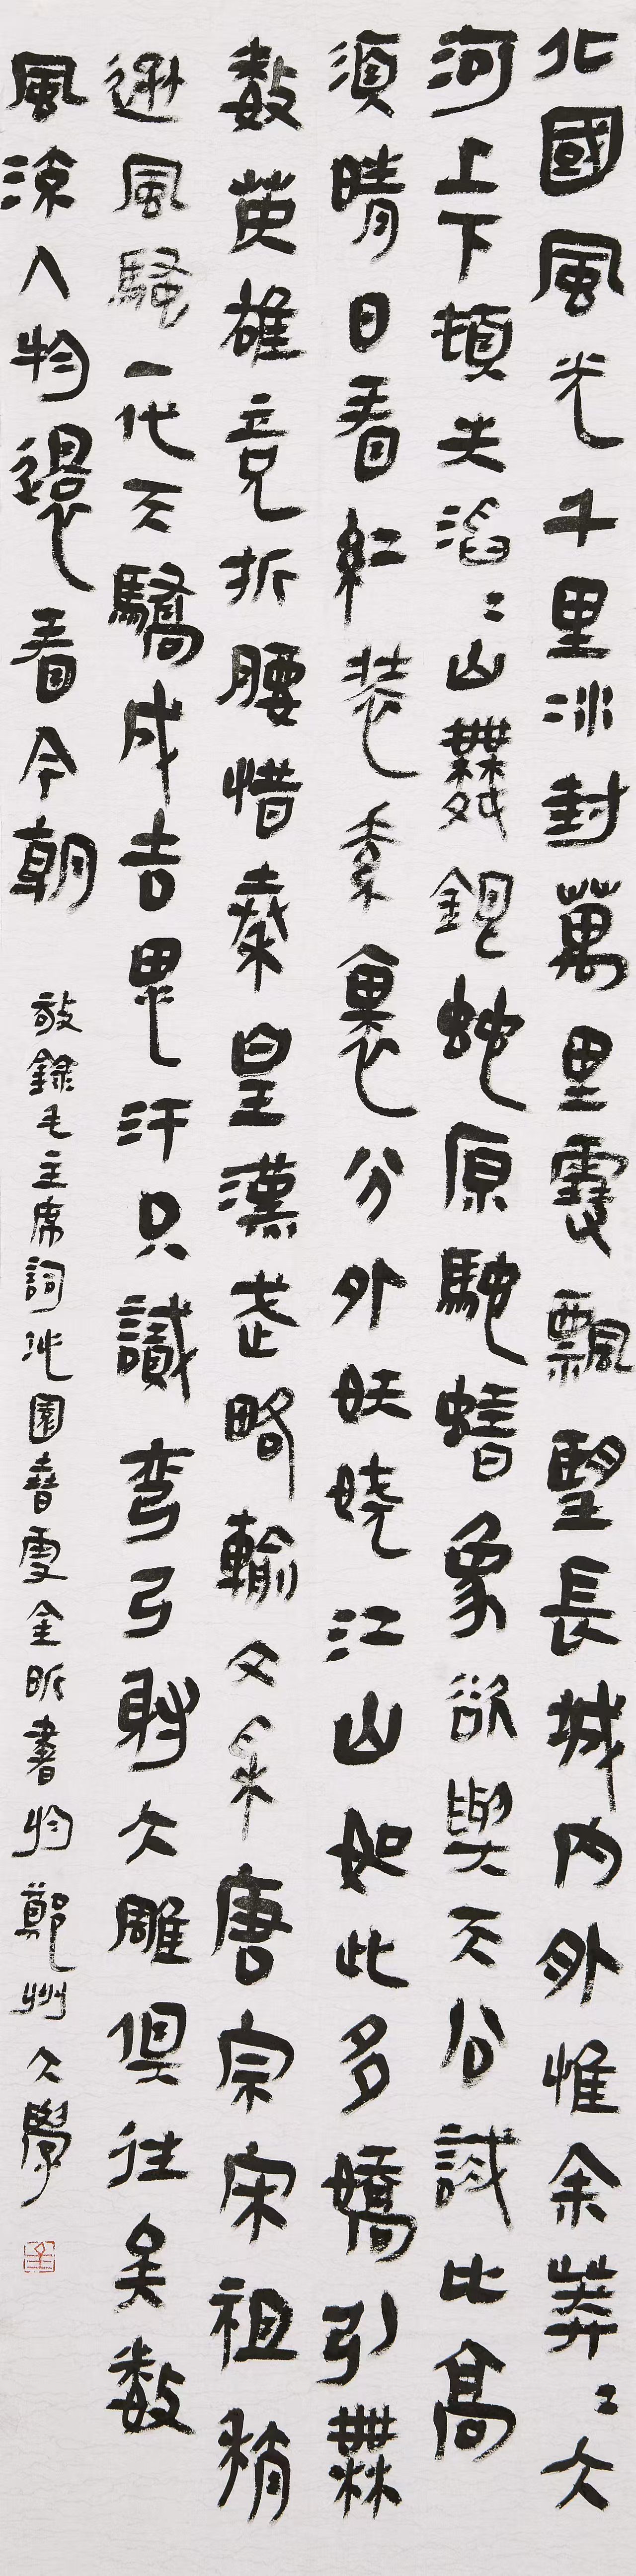 北國風光千里冰封萬里雪飄望長城内外惟余莽〻大
河上下頓失滔〻山舞銀蛇原馳蜡象欲與天公試比高
須晴日看紅裝素裹分外妖娆江山如此多嬌引無
數英雄竞折腰惜秦皇漢武略輸文采唐宗宋祖稍
遜風騷一代天驕成吉思汗只識弯弓射大雕俱往矣數
風流人物還看今朝 敬錄毛主席詞沁園春雪金昕書於鄭州大學